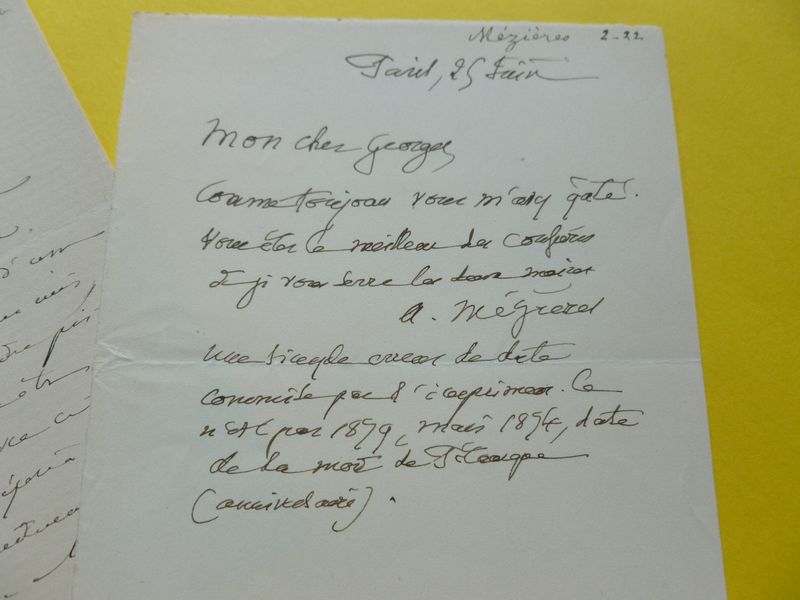 Mézières 2-22
Paris, 25 Juin
Mon cher Georges
Comme toujours vous m'avez gâté.
Vous êtes le meilleur des confrères
et je vous serre les deux mains
A. Mézières
une simple erreur de date
commise par l'imprimeur. Ce
n'est pas 1879, mais 1874, date
de la mort de Pétrarque
(anniversaire).
d'un